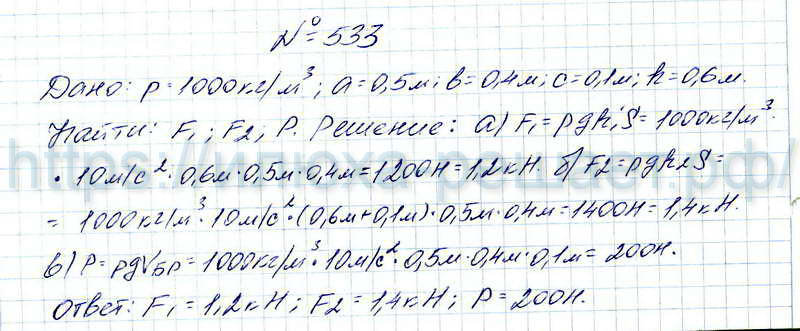 №533
Дано: ρ=1000кг/м³; a=0,5м; в=0,4м; c=0,1м; h=0,6м.
Найти: F₁; F₂, P. Решение: а) F₁=ρgh₁S=1000кг/м³·
·10м/с²·0,6м·0,5м·0,4м=1200Н=1,2кН. б) F₂=ρgh₂S=
=1000кг/м³·10м/с²·(0,6м+0,1м)·0,5м·0,4м=1400Н=1,4кН.
в) P=ρgVбр=1000кг/м³·10м/с²·0,5м·0,4м·0,1м=200Н.
Ответ: F₁=1,2кН; F₂=1,4кН; P=200Н.